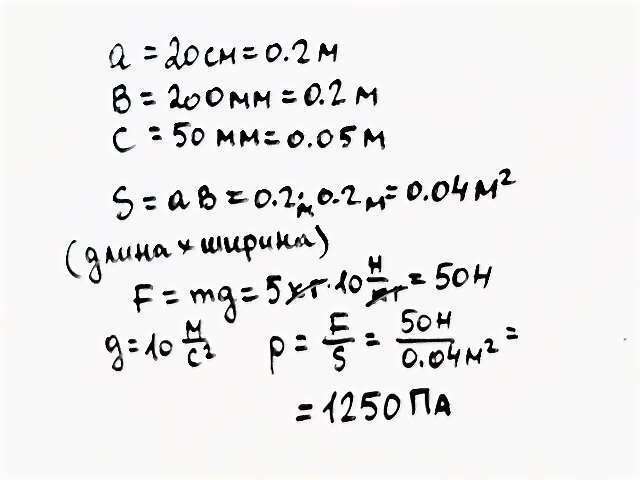 a = 20см = 0.2 м
B = 200мм = 0.2 м
C = 50 мм = 0.05 м
S = aB = 0.2 м · 0.2 м = 0.04 м²
(длина × ширина)
F = mg = 5 кг · 10 Н/кг = 50Н
g = 10 м/с² p = F/S = 50Н/0.04м² =
= 1250 ПА